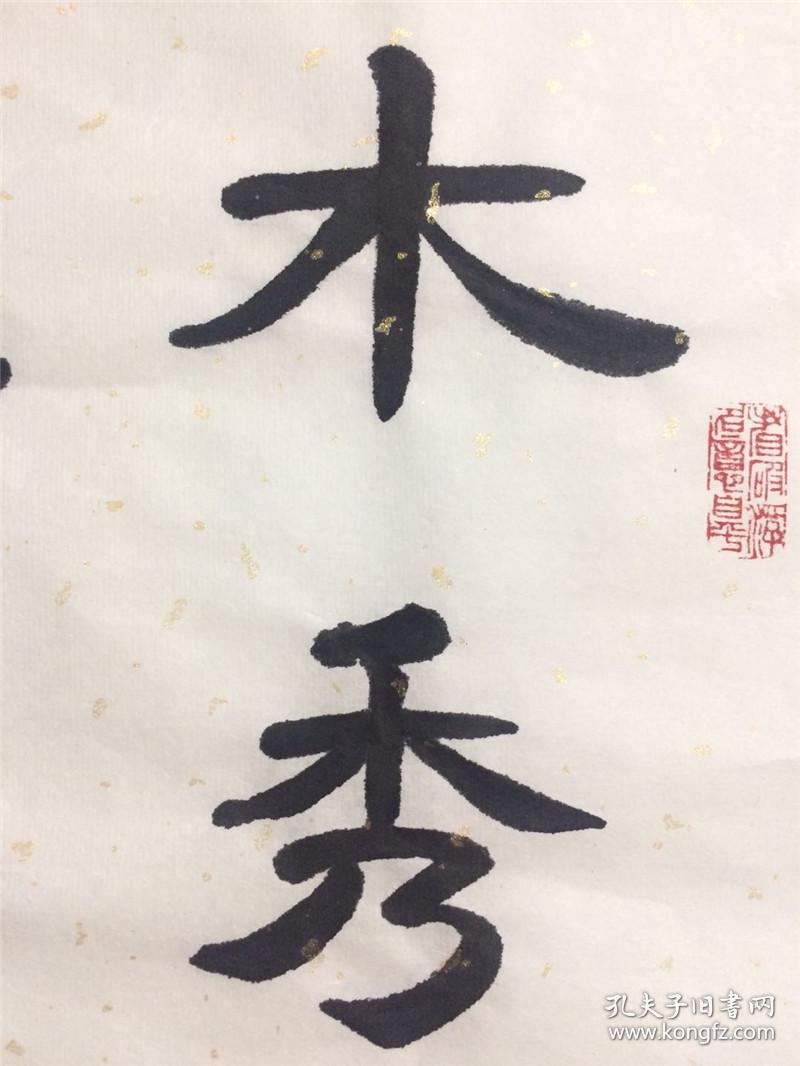 木秀
孔夫子旧書网
www.kongfz.com